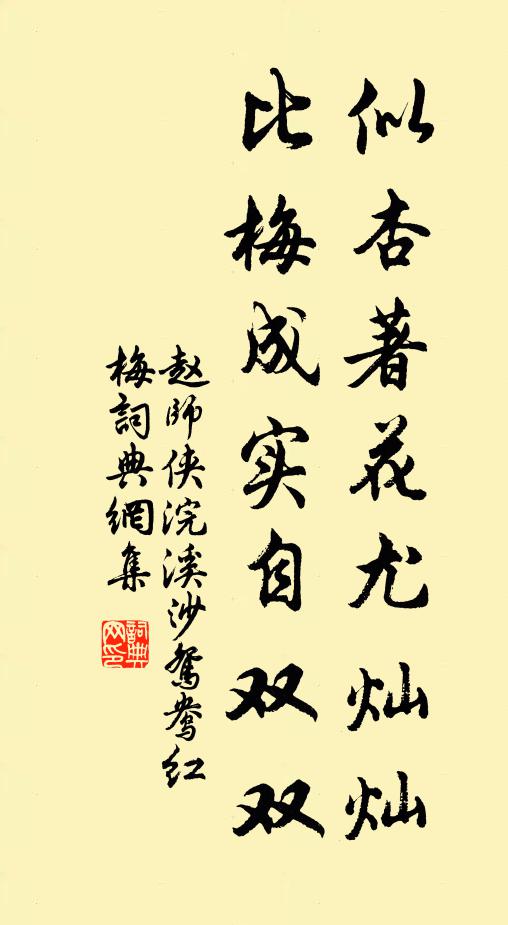 似杏著花尤灿灿
比梅成实自双双
赵师侠浣溪沙鸳鸯红
梅詞典網集
詞典网印